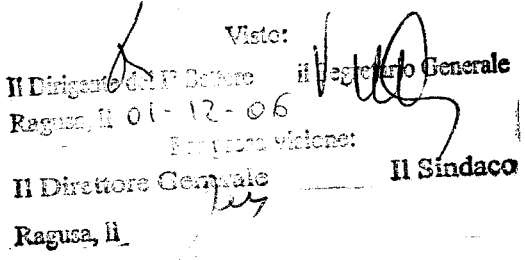 Visto:
Il Dirigente del I° Settore il Segretario Generale
Ragusa, lì 01-12-06
Per presa visione:
Il Direttore Generale Il Sindaco
Ragusa, lì